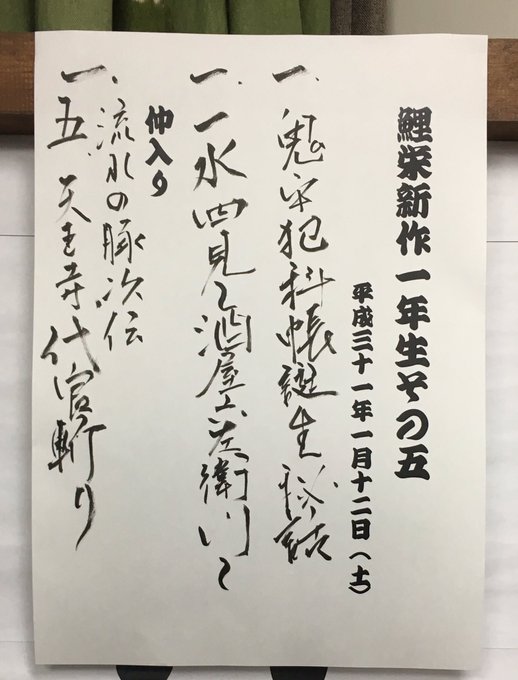 鯉栄新作一年生その五
平成三十一年一月十二日(土)
一、鬼平犯科帳誕生秘話
一、一水四見〜酒屋六左衛門〜
仲入り
一、流れの豚次伝
五、天王寺代官斬り